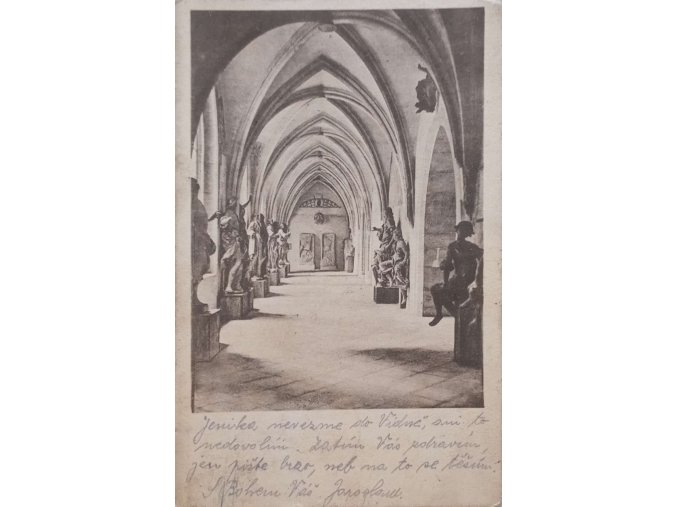 Jenika nevezme do Vídně, ani to
nedovolím. Zatím Vás zdravím
jen pište brzo, neb na to se těším.
S Bohem Váš Jaroslav.